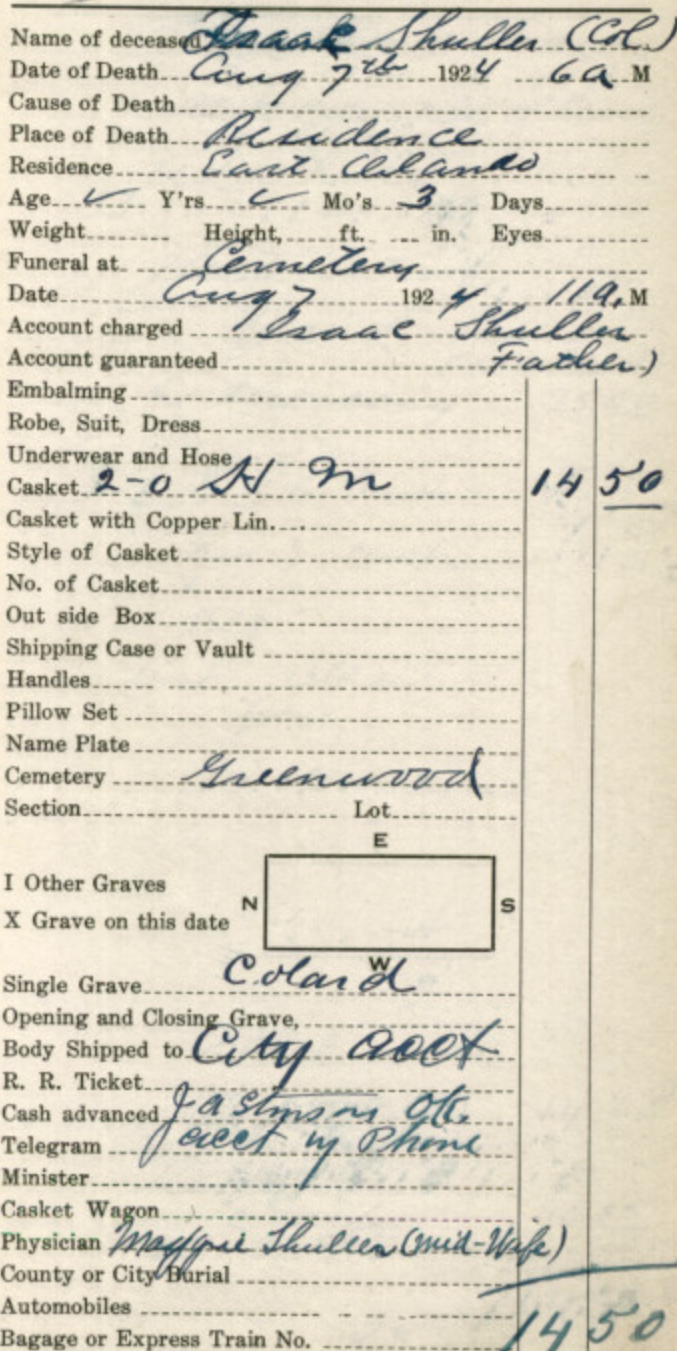 Name of deceased Isaac Shuller (Col.)
Date of Death Aug 7th 1924 6 a M
Cause of Death
Place of Death Residence
Residence East Orlando
Age ✓ Y'rs ✓ Mo's 3 Days
Weight Height, ft. in. Eyes
Funeral at Cemetery
Date Aug 7 1924 11 a. M
Account charged Isaac Shuller
Account guaranteed Father)
Embalming
Robe, Suit, Dress
Underwear and Hose
Casket 2-0 M 14 50
Casket with Copper Lin.
Style of Casket
No. of Casket
Out side Box
Shipping Case or Vault
Handles
Pillow Set
Name Plate
Cemetery Greenwood
Section Lot
E
I Other Graves
N S
X Grave on this date
W
Single Grave Colard
Opening and Closing Grave,
Body Shipped to City acct
R. R. Ticket
Cash advanced J A Stinson Ok.
Telegram acct by Phone
Minister
Casket Wagon
Physician Shuller (mid-Wife)
County or City Burial
Automobiles
Bagage or Express Train No. 14 50